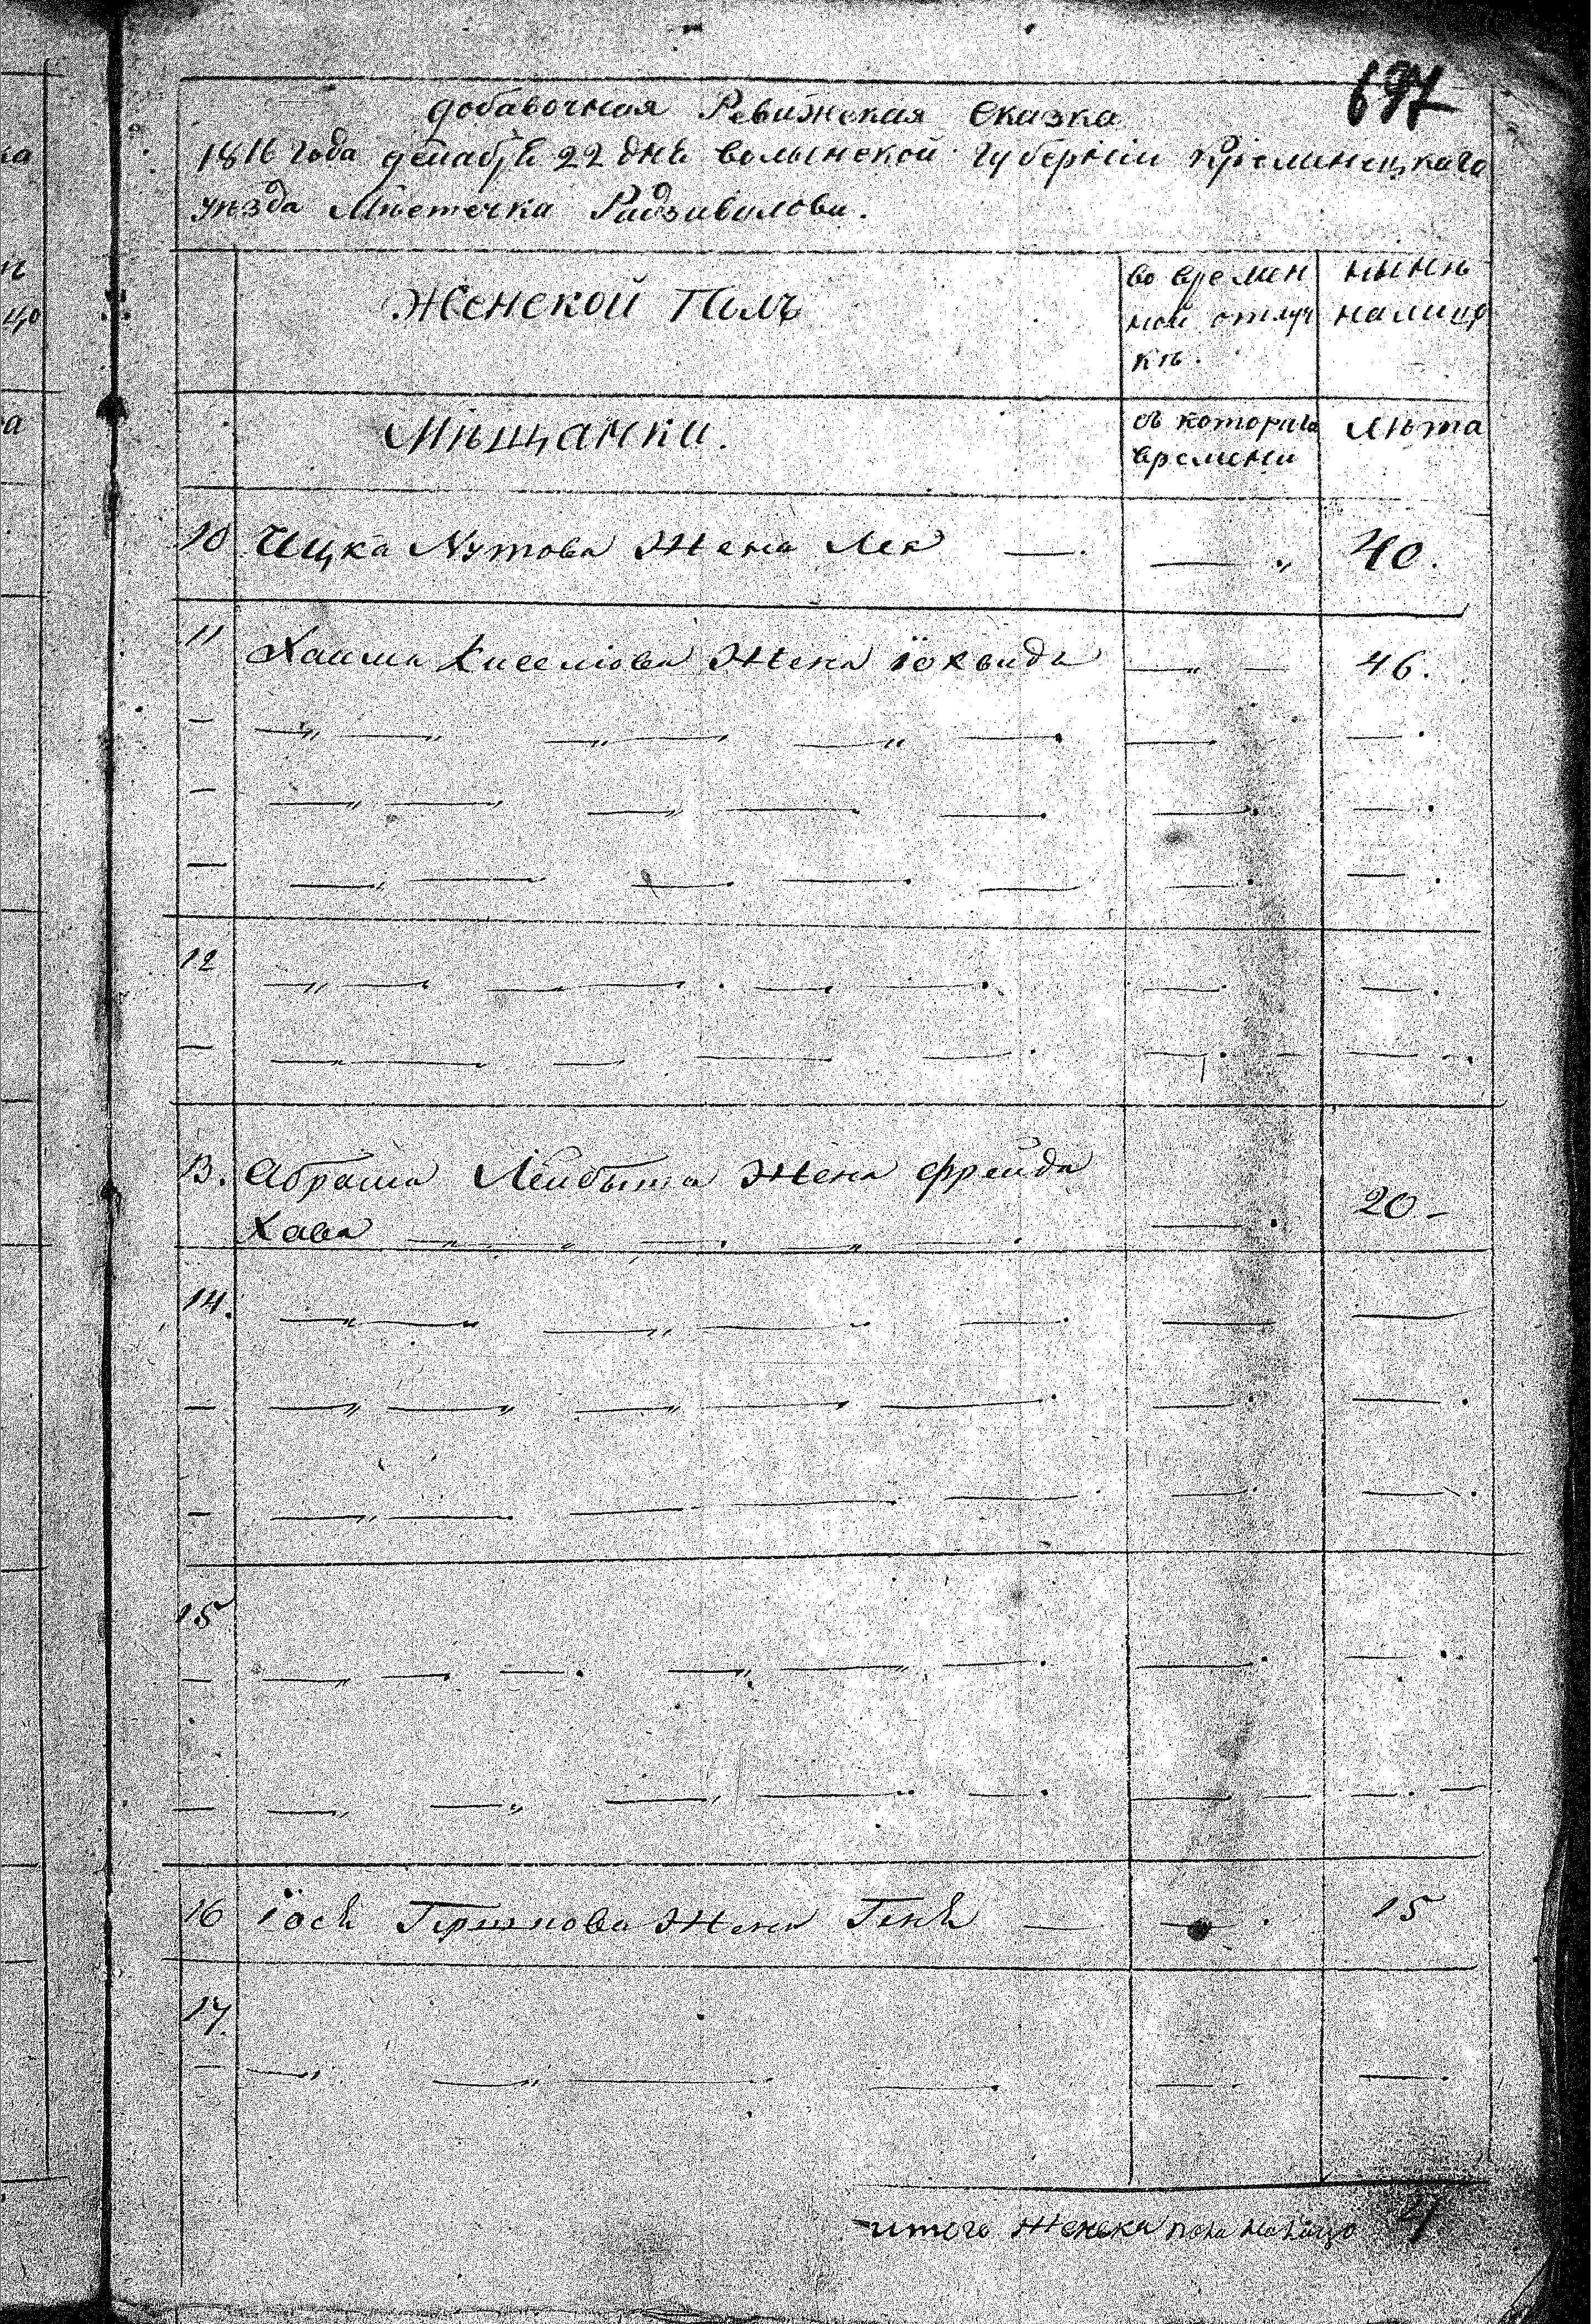 697
добавочная Ревижская Сказка
1816 года декабря 22 дня волынской губерніи Кременецкаго
уѣзда Мѣстечка Радзивилова.
Женской Полъ
во времен
ной отлуч
кѣ.
нынѣ
налицо
Мѣщанки.
съ котораго
времени
Лѣта
10 Ицка Нутова Жена Лея — . — „ 40.
11 Хаима Киселіова Жена іохвидъ — „ — 46.
12
13. Абрама Лейбыша Жена Фрейда
Хава — . 20 -
14.
15
16 іося Гершкова Жена Геня — — . 15
17.
итого женска пола налицо 4